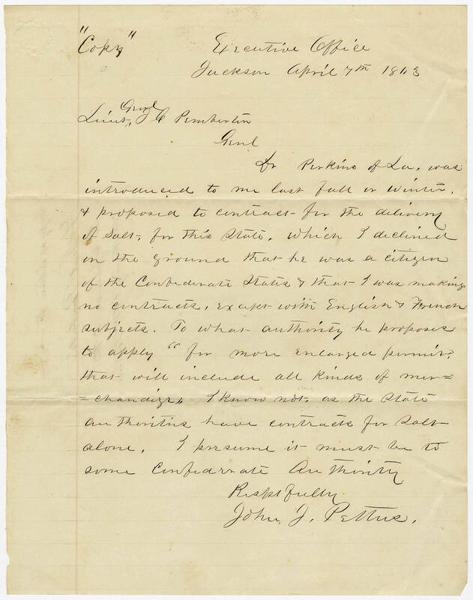 "Copy"
Executive Office
Jackson April 7th 1863
Lieut, Genl J C Pemberton
Genl
Dr Perkins of La, was
introduced to me last fall or winter,
& proposed to contract for the delivery
of salt, for this State, which I declined
on the ground that he was a citizen
of the Confederate States & that I was making
no contracts, except with English & French
subjects. To what authority he proposes
to apply "for more enlarged permit,
that will include all kinds of mer=
=chandize, I know not, as the State
authorities have contracts for salt
alone. I presume it must be to
some Confederate Authority
Respectfully
John, J. Pettus.